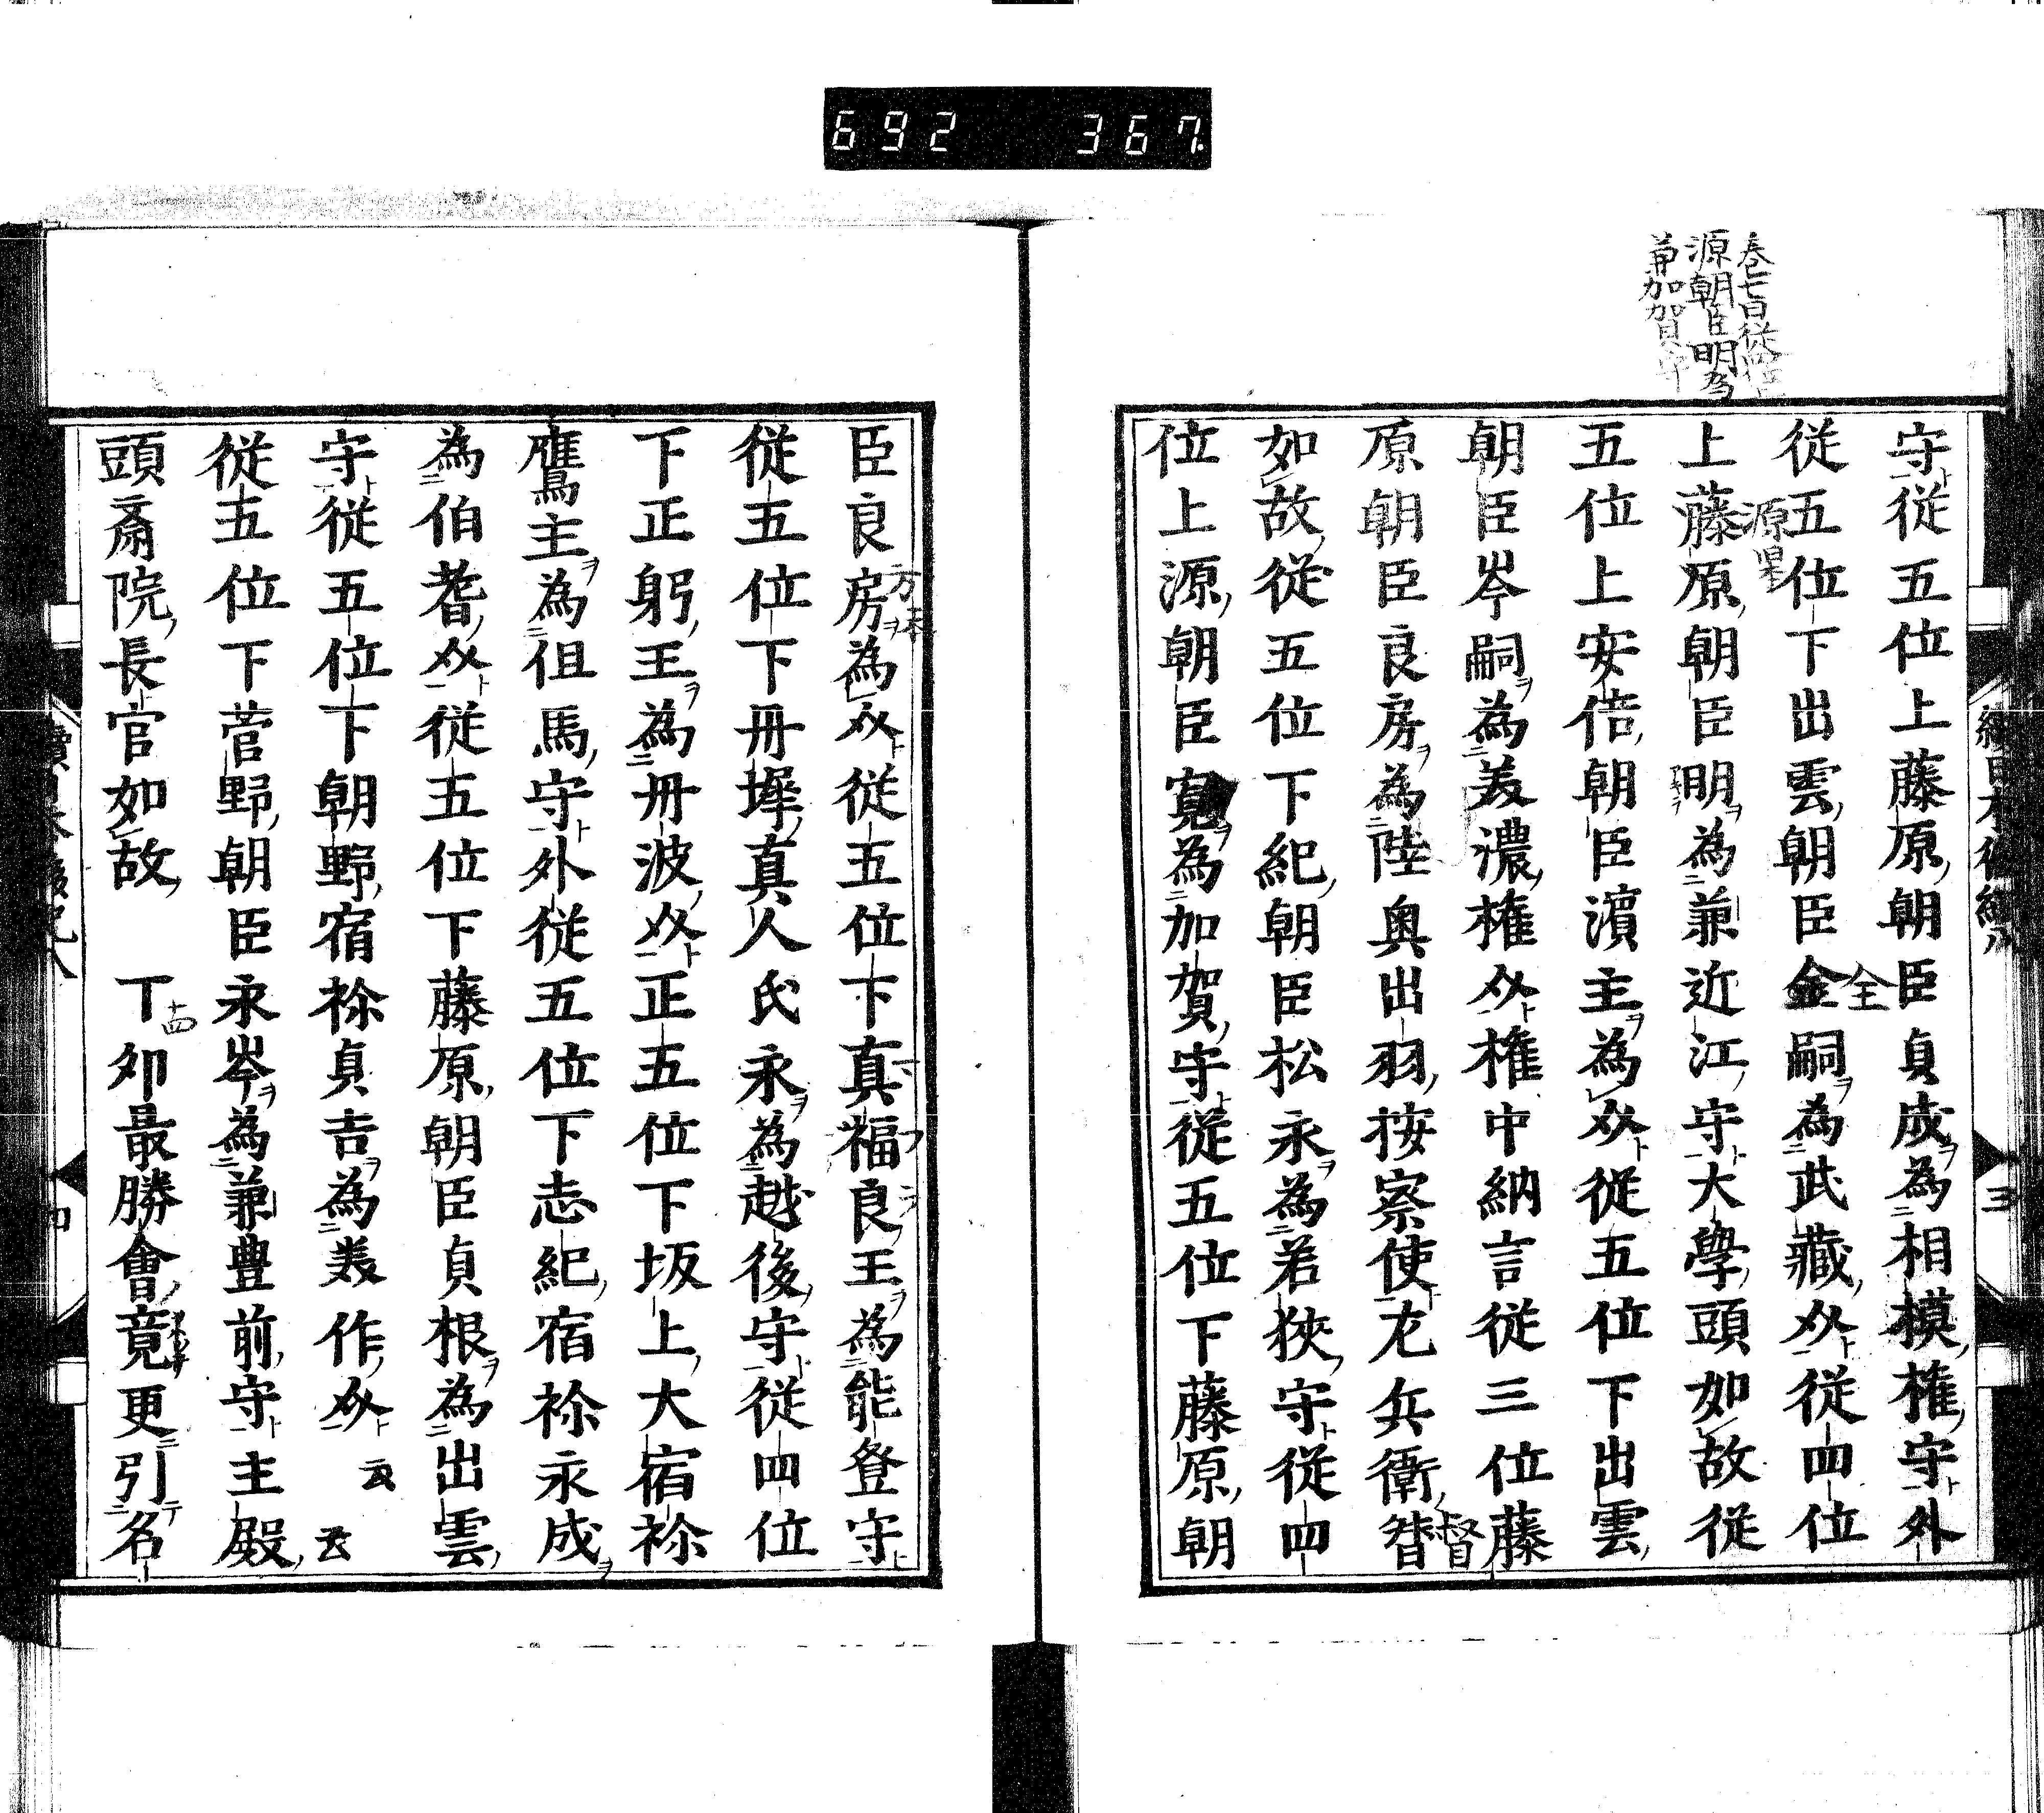 692 367
源朝臣明為
兼加賀守
守従五位上藤原朝臣貞成為相模権守外
従五位下出雲朝臣金嗣為武藏㕘従四位
全
上藤原朝臣明為兼近江守大學頭如故従
源
五位上安倍朝臣濱主為㕘従五位下出雲
朝臣岑嗣為美濃権㕘権中納言従三位藤
原朝臣良房為陸奥出羽按察使左兵衛督
督
如故従五位下紀朝臣松永為若狹守従四
位上源朝臣寛為加賀守従五位下藤原朝
臣良房為㕘従五位下真福良王為能登守
従五位下丹墀真人氏永為越後守従四位
下正躬王為丹波㕘正五位下坂上大宿祢
鷹主為但馬守外従五位下志紀宿祢永成
為伯耆㕘従五位下藤原朝臣貞根為出雲
守従五位下朝野宿祢貞吉為美作㕘云云
従五位下菅野朝臣永岑為兼豊前守主殿
頭斎院長官如故 丁夘最勝會竟更引名
十四